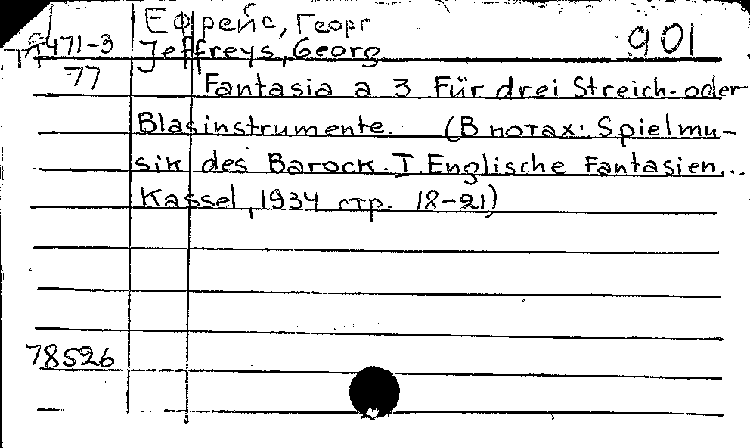 Ефрейс, Георг
471-3 Jeffreys, Georg 901
77 Fantasia a 3 Für drei Streich-oder
Blasinstrumente. (В нотах: Spielmu-
sik des Barock. I. Englische Fantasien...
Kassel, 1934 стр. 18-21)
78526